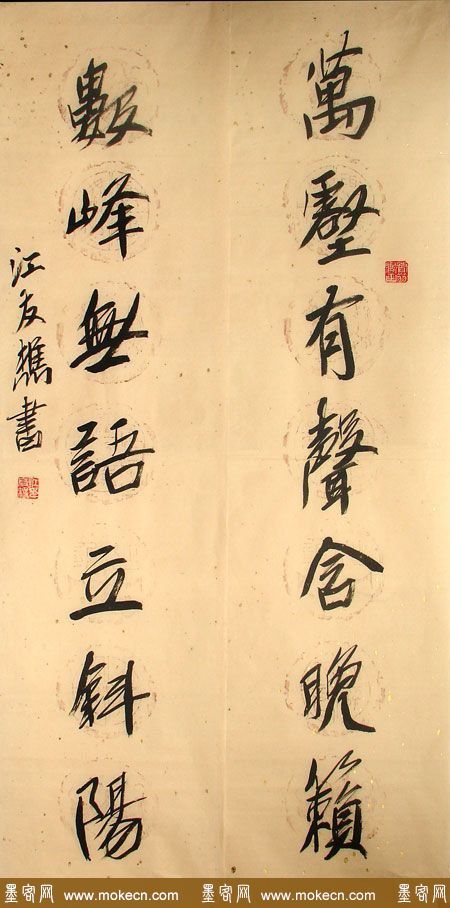 萬壑有聲含晚籟
數峰無語立斜陽
江友樵書
墨客网 www.mokecn.com 墨客网 www.mokecn.com 墨客网